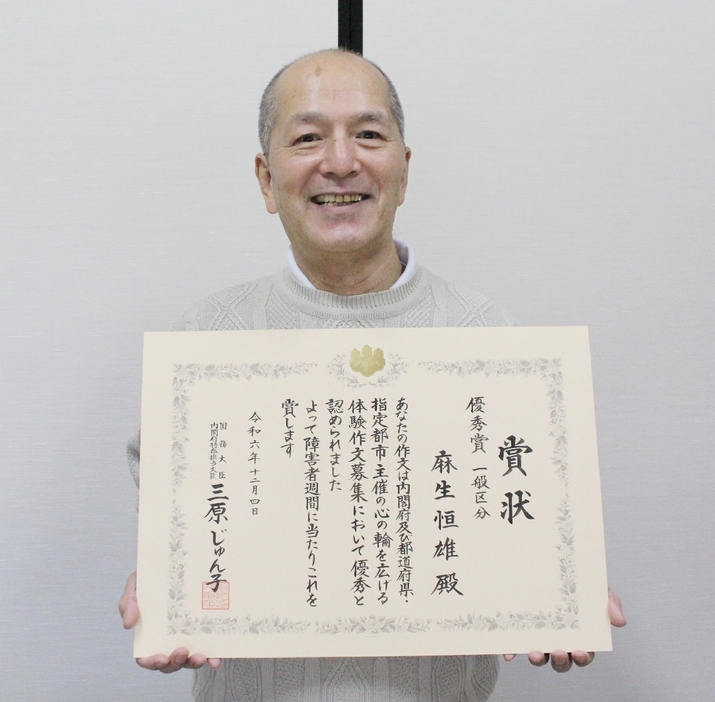 賞状
優秀賞 一般区分
麻生恒雄 殿
あなたの作文は内閣府及び都道府県・
指定都市主催の心の輪を広げる
体験作文募集において優秀と
認められました
よって障害者週間に当たりこれを
賞します
令和六年十二月四日
国務大臣
内閣府特命担当大臣
三原じゅん子